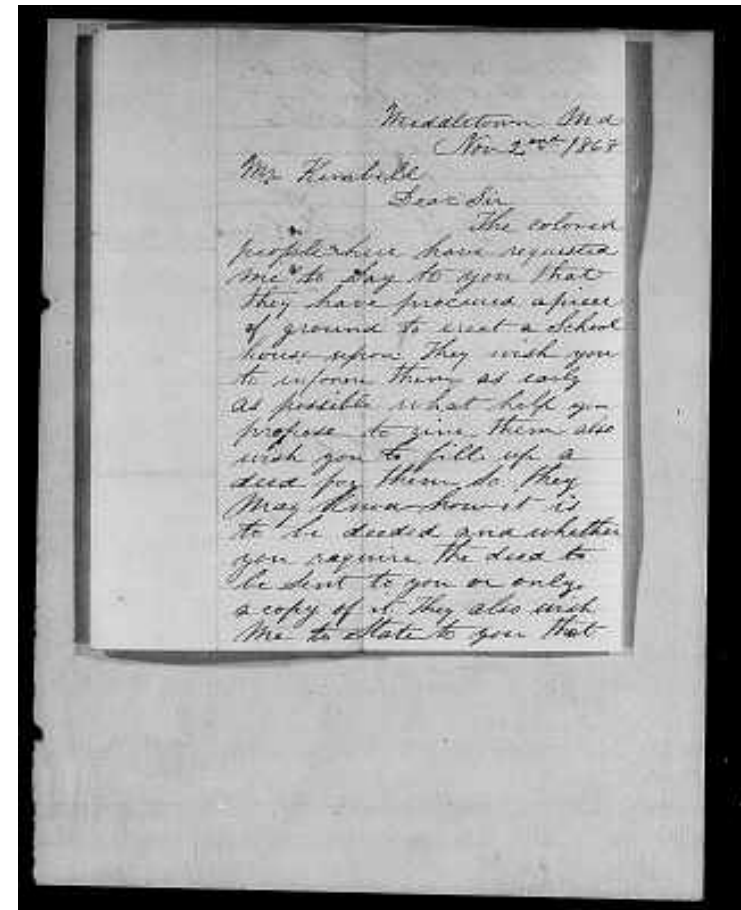 Middletown Md
Nov 2nd 1868
Mr Kimball
Dear Sir
The colored
people here have requested
me to say to you that
they have procured a piece
of ground to erect a School
house upon They wish you
to inform them as early
as possible what help you
propose to give them also
wish you to fill up a
deed for them so they
may know how it is
to be deeded and whether
you require the deed to
be sent to you or only
a copy of it They also wish
me to State to you that